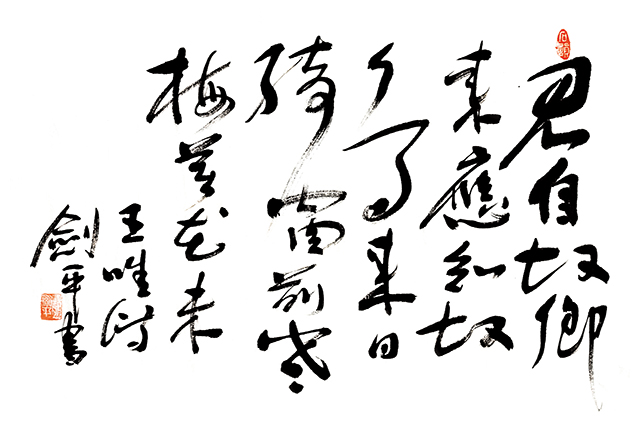 君自故鄉
来應知故
乡事来日
綺窗前寒
梅著花未
王唯诗
劍平書